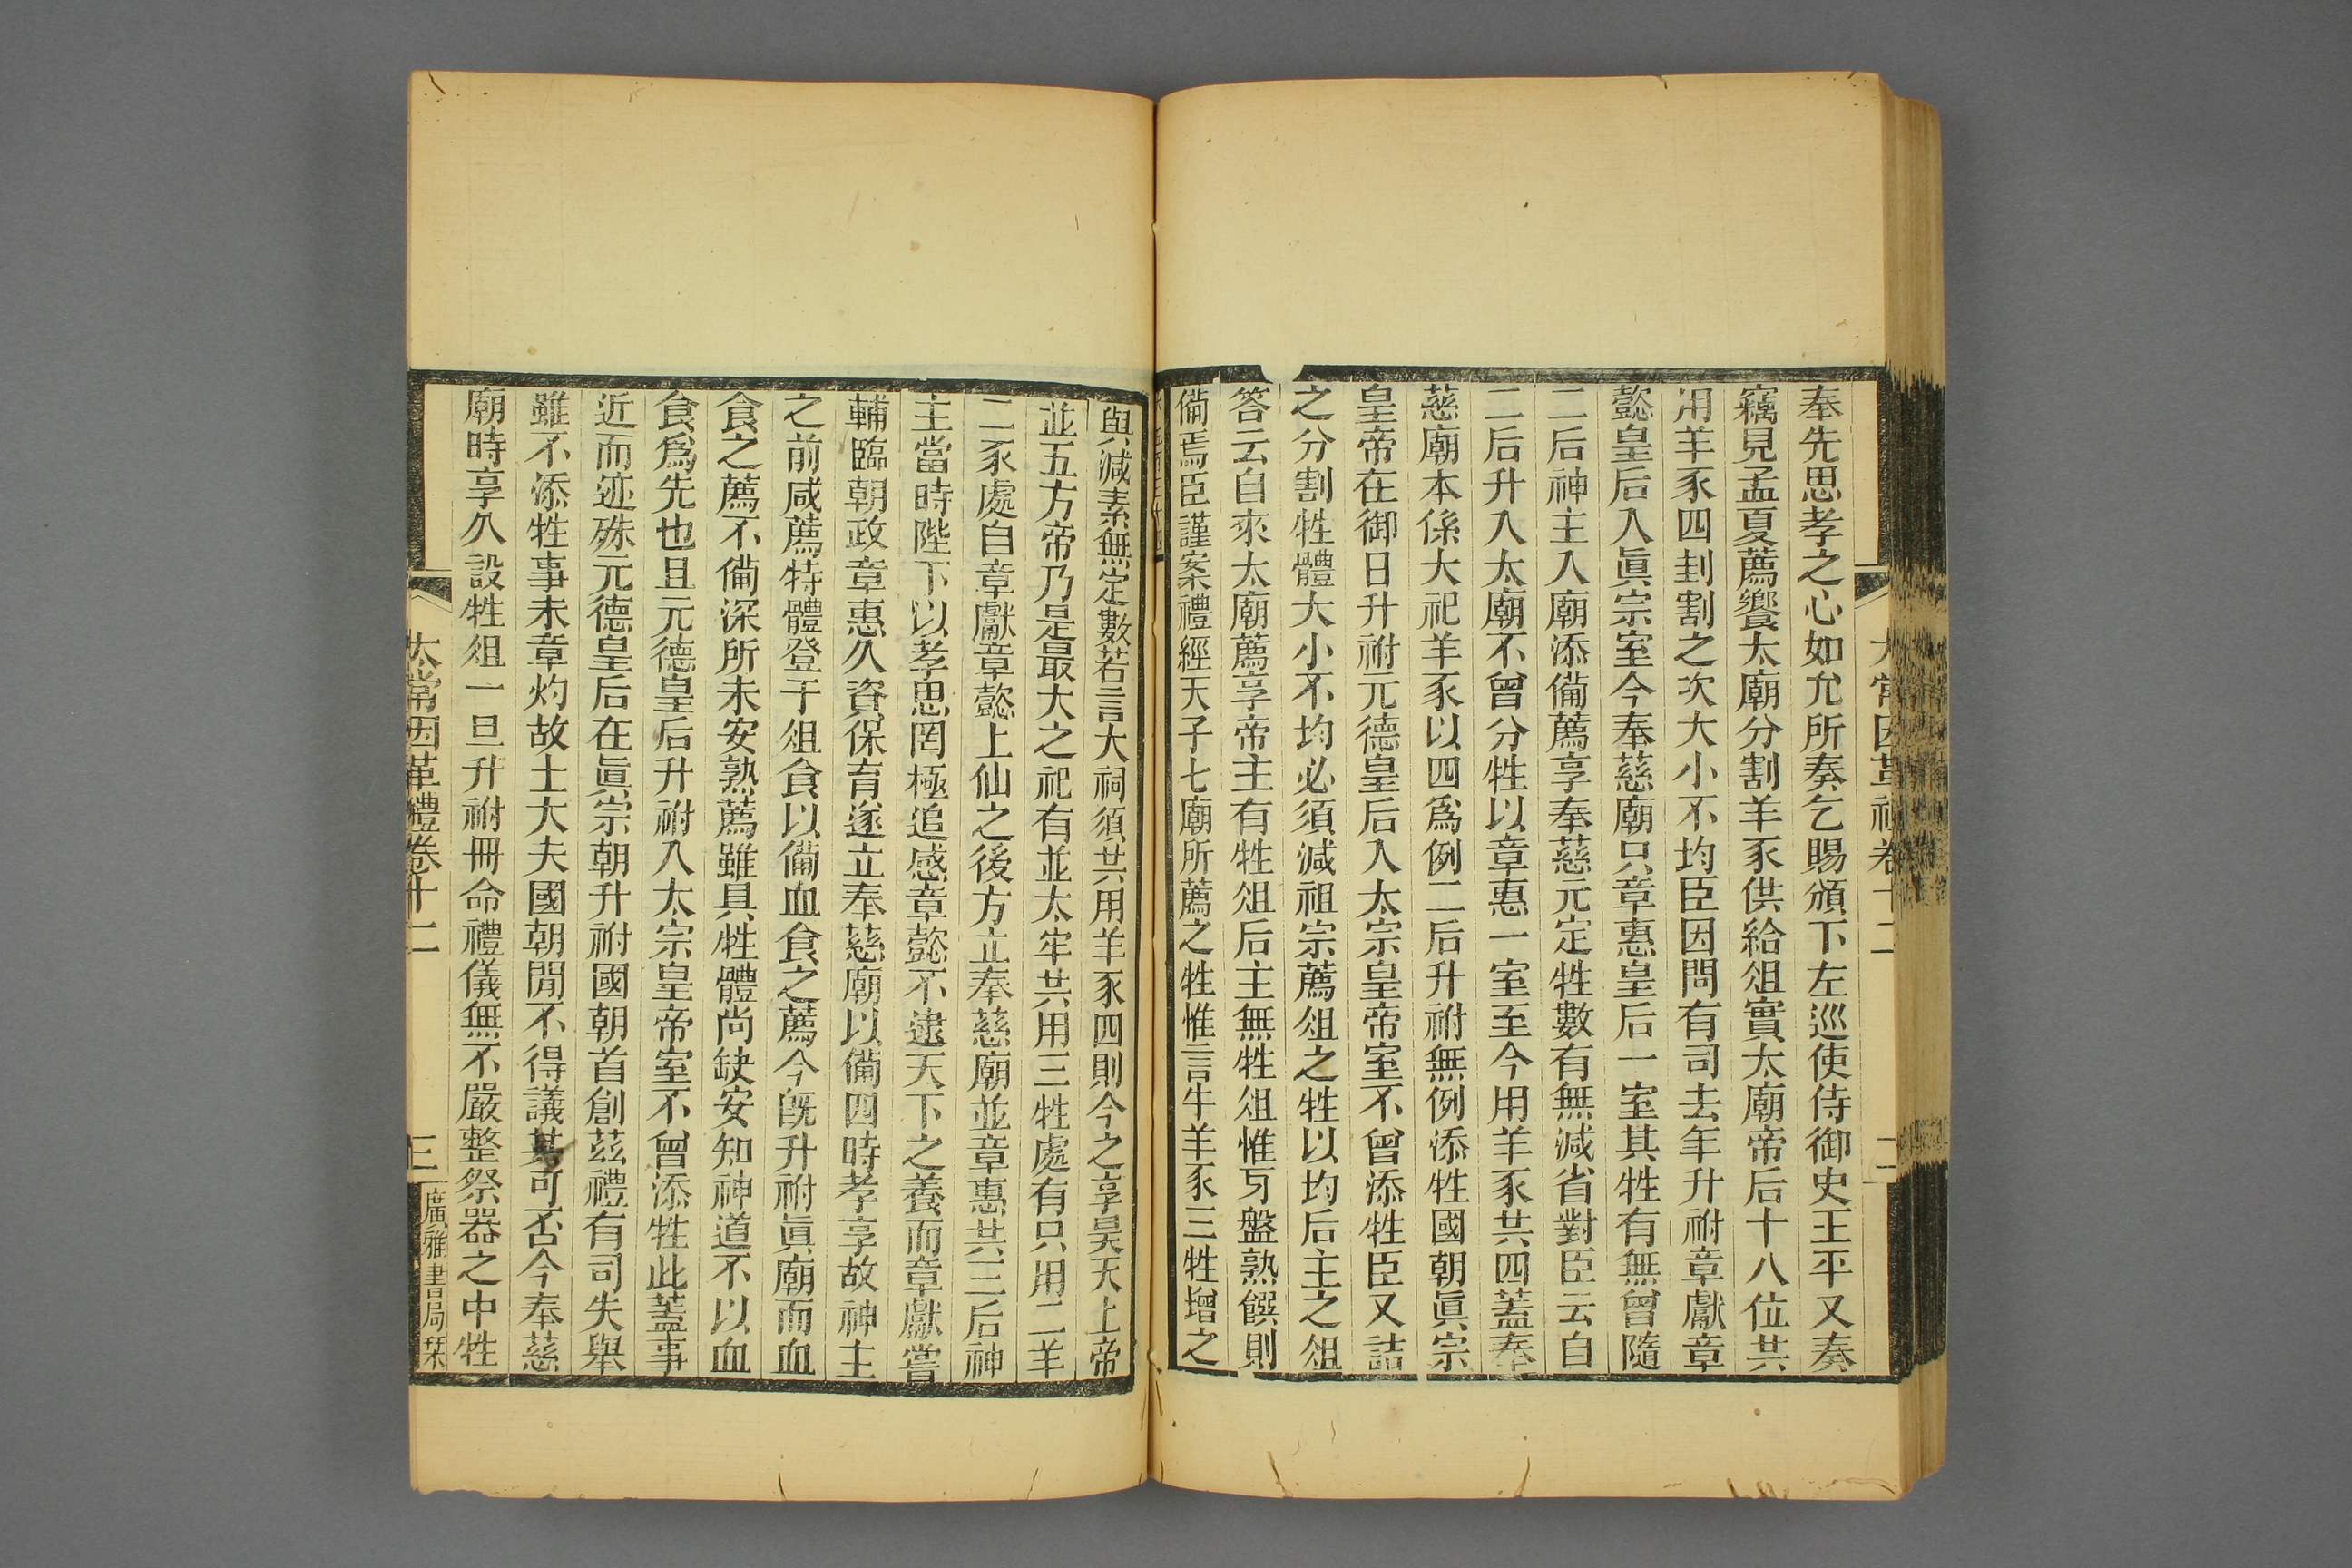 太常因革禮卷十二
二
奉先思孝之心如允所奏乞賜頒下左巡使侍御史王平又奏
竊見孟夏薦饗太廟分割羊豕供給俎實太廟帝后十八位共
用羊豕四割割之次大小不均臣因問有司去年升祔章獻章
懿皇后入眞宗室今奉慈廟只章惠皇后一室其牲有無曾隨
二后神主入廟添備薦享奉慈元定牲數有無減省對臣云自
二后升入太廟不曾分牲以章惠一室至今用羊豕共四蓋奉
慈廟本係大祀羊豕以四爲例二后升祔無例添牲國朝眞宗
皇帝在御日升祔元德皇后入太宗皇帝室不曾添牲臣又詰
之分割牲體大小不均必須減祖宗薦俎之牲以均后主之俎
答云自來太廟薦享帝主有牲俎后主無牲俎惟㸦盤熟饌則
備焉臣謹案禮經天子七廟所薦之牲惟言牛羊豕三牲增之
與減素無定數若言大祠須共用羊豕四則今之享昊天上帝
並五方帝乃是最大之祀有並太牢共用三牲處有只用二羊
二豕處自章獻章懿上仙之後方立奉慈廟並章惠共三后神
主當時陛下以孝思罔極追感章懿不逮天下之養而章獻嘗
輔臨朝政章惠久資保育遂立奉慈廟以備四時孝享故神主
之前咸薦特體登于俎食以備血食之薦今旣升祔眞廟而血
食之薦不備深所未安熟薦雖具牲體尚缺安知神道不以血
食爲先也且元德皇后升祔入太宗皇帝室不曾添牲此蓋事
近而迹殊元德皇后在眞宗朝升祔國朝首創茲禮有司失舉
雖不添牲事未章灼故士大夫國朝閒不得議其可否今奉慈
廟時享久設牲俎一旦升祔冊命禮儀無不嚴整祭器之中牲
太常因革禮卷十二
三
廣雅書局栞